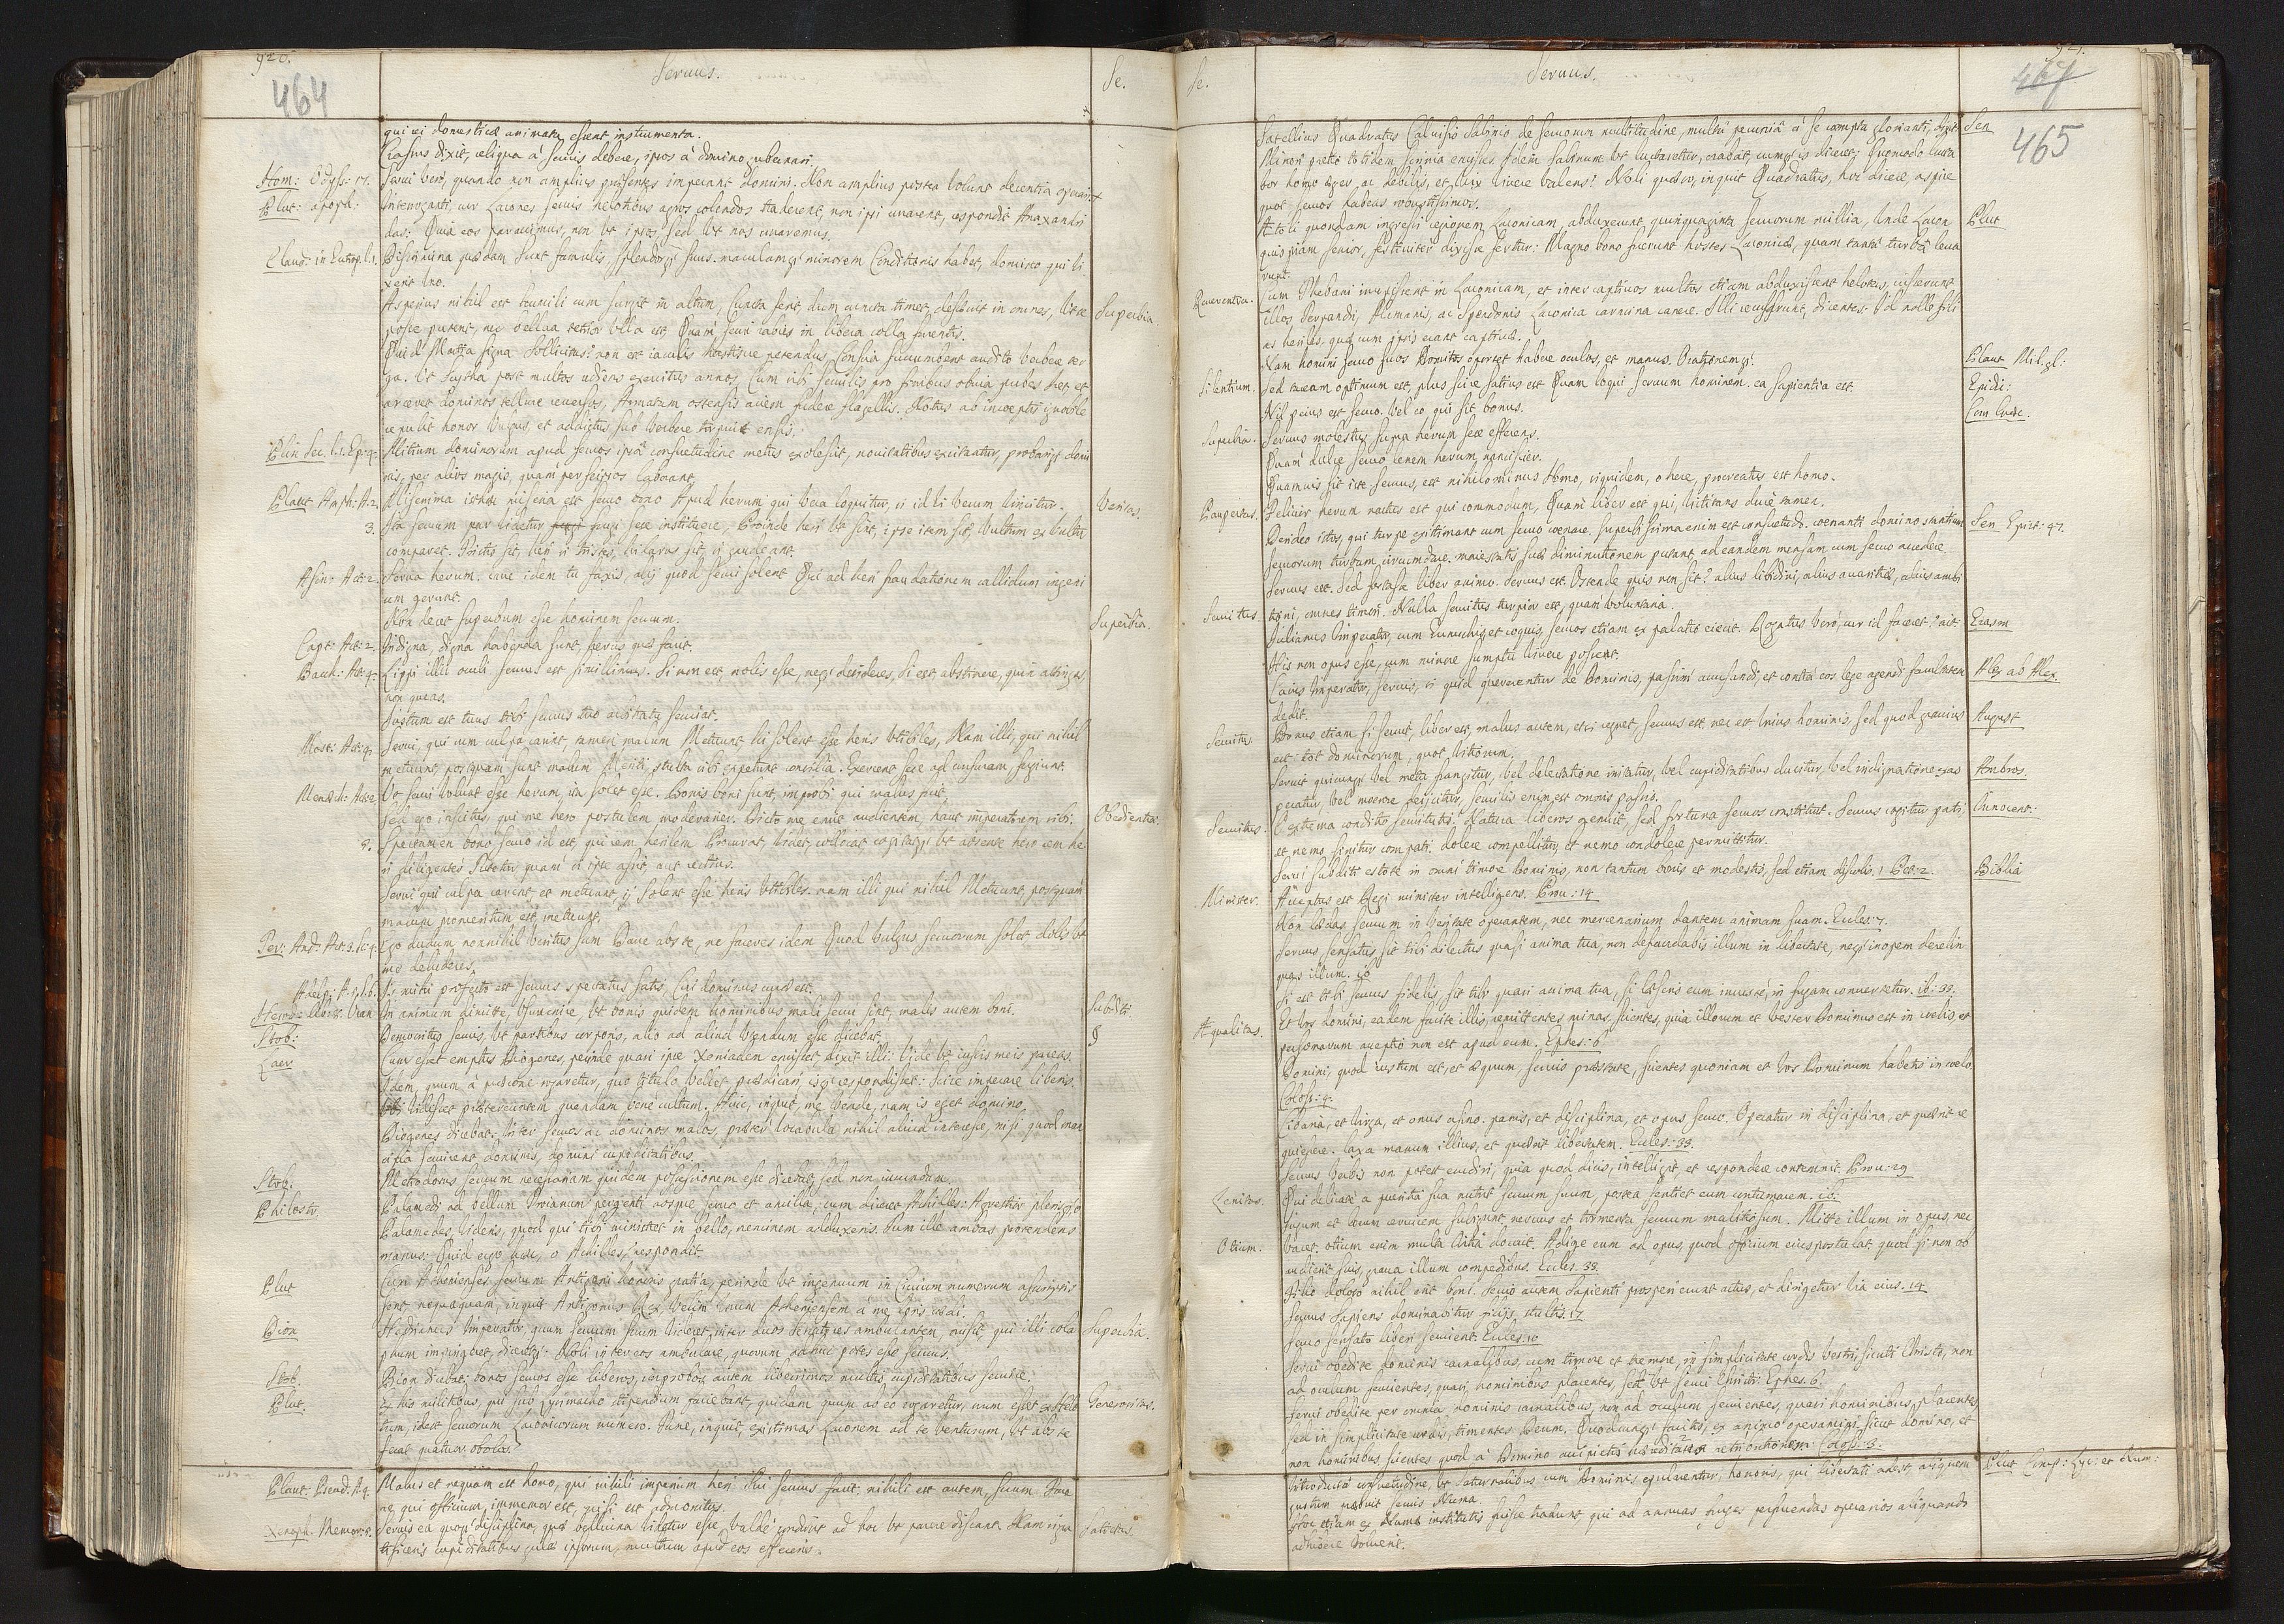 926.
464
Servus.
Se.
qui rei domesticæ animata essent instrumenta.
Crassus dixit, reliqua à servis debere, ipsos à domino gubernari.
Hom: Odyss: 17. Servi verò, quando non amplius præsentes imperant domini. Non amplius postea volunt decentia operari
Plut: apoph: Interroganti, cur Lacones servis helotibus agros colendos traderent, non ipsi curarent, respondit Anaxandri
das: Quia eos paravimus, non ut ipsos, sed ut nos curaremus.
Claud: in Eutrop. l.1. Discrimina quædam sunt famulis, splendorq suus. maculamq minorem Conditionis habet, domino qui vi
xerit uno.
Asperius nihil est humili cum surgit in altum, Cuncta ferit, dum cuncta timet, desævit in omnes, Ut se
posse putent, nec bellua tetrior ulla est, Quam servi rabies in libera colla furentis.
Superbia.
Quid Martia signa Sollicitas? non est iaculis hastisve petendus, Conscia succumbent audito verbere ter
ga. Ut Scytha post multos rediens exercitus annos, Cum sibi servilis pro finibus obvia pubes Iret, et
arceret dominos tellure reversos, Armatam ostensis aciem fudere flagellis. Notus ab inceptis ignobile
repulit honor Vulgus, et addictus sub verbere torpuit ensis.
Plin Sec. l.1. Ep: 4. Mitium dominorum apud servos ipsâ consuetudine metus exolescit, novitatibus excitantur, probariq domi
nis, per alios magis, quam per seipsos laborant.
Plaut Amph: A. 2. Miserrima istæc miseria est servo bono Apud herum qui vera loquitur, si id vi verum vincitur.
Veritas.
3. Ita servum par videtur frugi sese instituere, Proinde heri ut sint, ipse item sit, vultum ex vultu
comparet. Tristis sit, heri si tristes, hilarus sit, si gaudeant.
Asin: Act: 2. Serva herum. cave idem tu faxis, alij quod servi solent Qui ad heri fraudationem callidum ingeni
um gerunt.
Non decet superbum esse hominem servum.
Superbia.
Capt: Act: 2. Indigna, digna habenda sunt, herus quæ facit.
Bacch: Act: 4. Lippi illic oculi servus est simillimus. Si non est, nolis esse, neq desideres, Si est, abstinere, quin attingas
non queas.
Iustum est tuus tibi servus tuo arbitratu serviat.
Most: Act: 4. Servi, qui cum culpa carint, tamen malum Metuunt, hi solent esse heris utibiles, Nam illi, qui nihil
metuunt, postquam sunt malum Meriti, stulta sibi expetunt consilia. Exercent sese ad cursuram, fugiunt.
Menæch: Act: 2. Ut servi volunt esse herum, ita solet esse. Bonis boni sunt, improbi qui malus fuit.
Sed ego inscitus, qui me hero postulem moderarier. Dicto me emit audientem, haut imperatorem sibi.
Obedientia.
Specimen bono servo id est, qui rem herilem Procurat, videt, collocat cogitatq ut absente hero rem he
ri diligenter Tutetur quam si ipse assit, aut rectius.
Servi qui culpa carent, et metuunt, ij solent esse heris utibiles. nam illi qui nihil Metuunt, postquam
malum promeritum est, metuunt.
Ter: And: Act: 3. Sc: 4. Ego dudum nonnihil veritus sum Dave abs te, ne faceres idem Quod vulgus servorum solet dolis ut
me deluderes.
Is mihi profecto est servus spectatus satis, Cui dominus curæ est.
In animam dimitte, ut bonis quidem hominibus mali servi sint, malis autem boni.
Subditi
Stob: Democritus servis, ut partibus corporis, alio ad aliud utendum esse dicebat.
§
Laer Cum esset emptus Diogenes, perinde quasi ipse Xeniadem emisset, dixit illi: Vide ut iussis meis pareas.
Idem, quum à præcone rogaretur, quo titulo vellet prædicari, respondisset: Scire imperare liberis.
vidisset prætereuntem quendam benè cultum. Huic, inquit, me vende, nam is eget domino.
Diogenes dicebat: Inter servos ac dominos malos, præter vocabula nihil aliud interesse, nisi quod man
cipia servirent dominis, domini cupiditatibus.
Stob. Metrodorus servum necessariam quidem possessionem esse dicebat, sed non iucundam.
Philostr. Palamedi ad bellum Troianum pergenti absque servo et ancilla, cum diceret Achilles: Agrestior plerisq o
Palamedes, videris, quod qui tibi ministret in bello, neminem adduxeris. Tum ille ambas protendens
manus: Quid ergo hæ, o Achilles, respondit.
Plut Cum Athenienses servum Antigoni hominis gratia, perinde ut ingenuum in Civium numerum ascripsis
sent nequaquam, inquit Antigonus Rex velim unum Atheniensem à me verberis cædi.
Dion Hadrianus Imperator, quum servum suum videret, inter duos Senatores ambulantem, misit, qui illi cola
phum impingeret, diceretq: Noli inter eos ambulare, quorum adhuc potes esse servus.
Superbia.
Stob. Bion dicebat: bonos servos esse liberos, improbos autem liberos multis cupiditatibus servire.
Plut. Ex his militibus, qui sub Lysimacho stipendium faciebant, quidam quum ab eo rogaretur, num esset ex Helo
tum, idest servorum Laconicorum numero. Tune, inquit, existimas Laconem ad te venturum, ut abs te
ferat quatuor obolos?
Generositas.
Plaut: Pseud. A. 4. Malus et nequam est homo, qui nihili imperium heri Sui servus facit, nihili est autem, suum
qui officium, immemor est, nisi est admonitus.
Xenoph. Memor: Servis ea quoq disciplina, quæ belluina videtur esse, valde conducit ad hoc ut parere discant. Nam si
cupiditatibus ipsorum, multum apud eos effeceris.

927.
467
465
Se.
Servus.
Satellius Quadratus Calvisio Sabino de servorum multitudine, multâ pecuniâ à se compta glorianti, dixit:
Sen
Minori pretio totidem scrinia emisses. Idem Sabinum ut luctaretur, orabat, cumq is diceret: Quomodo lucta
bor homo æger ac debilis, et vix vivere valens? Noli quæso, inquit Quadratus, hoc dicere, aspice
quot servos habeas robustissimos.
Ætoli quondam ingressi regionem Laconicam, abduxerunt quinquaginta servorum millia, Unde Lacon
Plut
quispiam senior, festiviter dixisse fertur: Magno bono fuerunt hostes Laconicæ, quam tantâ turbâ leva
runt.
Reverentia. Cum Thebani irrupissent in Laconicam, et inter captivos multos etiam abduxissent helotas, iusserunt
illos Terpandri, Alcmanis, ac Spendontis Laconica carmina canere. Illi recusarunt, dicentes: Id nolle fili
os heriles. qui cum ipsis erant captivi.
Nam homini servo suos Domitos oportet habere oculos, et manus. Orationemq.
Plaut Mil. gl:
Silentium. Sed taceam optimum est, plus scire satius est Quam loqui servum hominem. ea sapientia est.
Epidi:
Nil peius est servo. vel eo, qui sit bonus.
Com Græc.
Superbia. Servus molestus, supra herum sese efferens.
Quam dulce servo lenem herum nanciscier.
Quamvis sit iste servus, est nihilominus Homo, siquidem, o here, procreatus est homo.
Paupertas. Felicior herum nactus est qui commodum, Quam liber est qui, victitans durè tamen.
Derideo istos, qui turpe existimant cum servo coenare. Superbissima enim est consuetudo. coenanti domino stantium
Sen Epist: 47.
servorum turbam circumdare. maiestatis suæ diminutionem putant ad eandem mensam cum servo accedere.
Servus est. Sed fortasse liber animo. Servus est. Ostende quis non sit? alius libidini, alius avaritiæ, alius ambi
Servitus tioni, omnes timori. Nulla servitus turpior est, quam voluntaria.
Iulianus Imperator, cum Eunuchis et coquis, servos etiam ex palatio eiecit. Rogatus verò, cur id faceret? ait:
Erasm
His non opus esse, cum minore sumptu vivere posset.
Caius Imperator, servis, si quid quererentur de Dominis, passim accusandi, et contra eos lege agendi facultatem
Alex ab Alex.
dedit.
Servitus. Bonus etiam si serviat, liber est, malus autem, etsi regnet, servus est. nec est unius hominis, sed quod gravius
August
est: tot dominorum, quot vitiorum.
Servit quicunq vel metu frangitur, vel delectatione irritatur, vel cupiditatibus ducitur, vel indignatione exas
Ambros.
peratur, vel moerore deijcitur, servilis enim est omnis passio.
Servitus. O extrema conditio servitutis! Natura liberos genuit, sed fortuna servos constituit. Servus cogitur pati,
Innocent:
et nemo sinitur compati. dolere compellitur, et nemo condolere permittitur.
Servi subditi estote in omni timore Dominis, non tantum bonis et modestis, sed etiam dyscolis. 1 Pet: 2.
Biblia
Minister. Acceptus est Regi minister intelligens. Prov: 14
Non lædas servum in veritate operantem, nec mercenarium dantem animam suam. Eccles: 7.
Servus, sensatus, sit tibi dilectus quasi anima tua, non defraudabis illum in libertate, neq inopem derelin
quas illum. ib
Si est tibi servus fidelis, sit tibi quasi anima tua, si læseris eum iniustè, in fugam convertetur. ib: 33.
Æqualitas. Et vos domini, eadem facite illis, remittentes minas, scientes, quia illorum et vester Dominus est in coelis, et
personarum acceptio non est apud eum. Ephes: 6
Domini, quod iustum est, et æquum servis præstate, scientes quoniam et vos Dominum habetis in coelo.
Coloss: 4.
Cibaria, et virga, et onus asino. panis, et disciplina, et opus servo. Operatur in disciplina, et quærit re
quiescere. laxa manum illius, et quærit libertatem. Eccles: 33.
Servus verbis non potest erudiri, quia quod dicis, intelligit, et respondere contemnit. Prov: 29
Lenitas. Qui delicatè a pueritia sua nutrit servum suum, postea sentiet eum contumacem. ib:
Iugum et lorum cervicem subigunt, servum malitiosum. Mitte illum in opus, nec
Otium. vacet. otium enim multa vitia docuit. Adige eum ad opus, quod officium eius postulat, quod si non ob
audient suis, prava illum compedibus. Eccles. 33.
Filio doloso nihil erit boni. Servo autem sapienti prosperi erunt actus, et dirigetur via eius. 14
Servus Sapiens dominabitur filijs stultis. 17
Servo sensato liberi servient. Eccles: 10
Servi obedite dominis carnalibus, cum timore et tremore, in simplicitate cordis vestri, sicuti Christo, non
ad oculum servientes, quasi hominibus placentes, sed ut servi Christi. Ephes. 6.
Servi obedite per omnia dominis carnalibus, non ad oculum servientes, quasi hominibus placentes,
sed in simplicitate cordis, timentes Deum. Quodcunq facitis, ex animo operamini sicut Domino, et
non hominibus scientes quod à Domino accipietis hæreditatis retributionem. Coloss: 3.
Introductâ consuetudine, ut Saturnalibus cum Dominis epularentur, honoris, qui libertati adest, aliquem
Plut Comp: Lyc: et Num:
gustum præbuit servis Numa.
Hoc etiam ex Numæ institutis fuisse tradunt qui ad annuas fruges percipiendas operarios aliquando
adhibere voluerit.